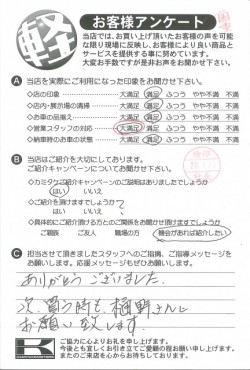 軽
お客様アンケート
当店では、お買い上げ頂いたお客様の声を可能
な限り現場に反映し、お客様により良い商品と
サービスを提供する事に努めています。
大変お手数ですが是非お声をお聞かせ下さい。
A 当店を実際にご利用になった印象をお聞かせ下さい。
◇店の印象 ◇大満足 満足 ふつう やや不満 不満
◇店内・展示場の清掃 ◇大満足 満足 ふつう やや不満 不満
◇お車の品揃え ◇大満足 満足 ふつう やや不満 不満
◇営業スタッフの対応 ◇大満足 満足 ふつう やや不満 不満
◇納車時のお車の状態 ◇大満足 満足 ふつう やや不満 不満
B 当店はご紹介を大切にしております。
ご紹介キャンペーンについてお聞かせ下さい。
◇カミタケご紹介キャンペーンのご説明はありましたでしょうか
はい いいえ
◇ご紹介を頂けますでしょうか?
はい いいえ
◇具体的にご紹介頂ける方とのご関係をお聞かせ頂けますでしょうか
ご親族 ご友人 職場の方 機会があれば紹介したい
C 担当させて頂きましたスタッフへのご指摘、ご指導メッセージを
お願いします。応援メッセージもぜひお願いします。
ありがとうございました。
次、買う時も 樋野さんに
お願い致します。
K
ご協力に心よりお礼を申し上げます。
今後とも宜しくお引き立てご愛顧の程お願い申し上げます。
またのご来店を心からお待ちしております。